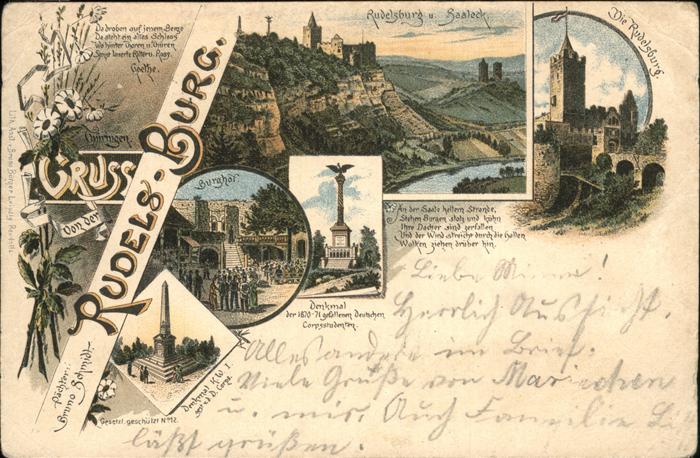 Da droben auf jenem Berge
Da steht ein altes Schloss
Wo hinter Thoren u. Thüren
Sonst lauerte Ritter u. Ross.
Goethe.
Thüringen.
GRUSS
von der
RUDELS-BURG.
Pächter:
Bruno Schmidt.
Rudelsburg u. Saaleck.
Die Rudelsburg.
Burghof
An der Saale hellem Strande,
Stehen Burgen stolz und kühn
Ihre Dächer sind zerfallen
Und der Wind streicht durch die Hallen
Wolken ziehen drüber hin.
Denkmal
der 1870-71 gefallenen Deutschen
Corpsstudenten.
Denkmal K.W. I.
Gesetzl. geschützt No 12.
Lith. Anst. v. Bruno Bürger
Liebe Minna!
Herrlich Aussicht.
Alles andere im Brief.
Viele Grüße von Mariechen
u. mir. Auch Familie
läßt grüßen.